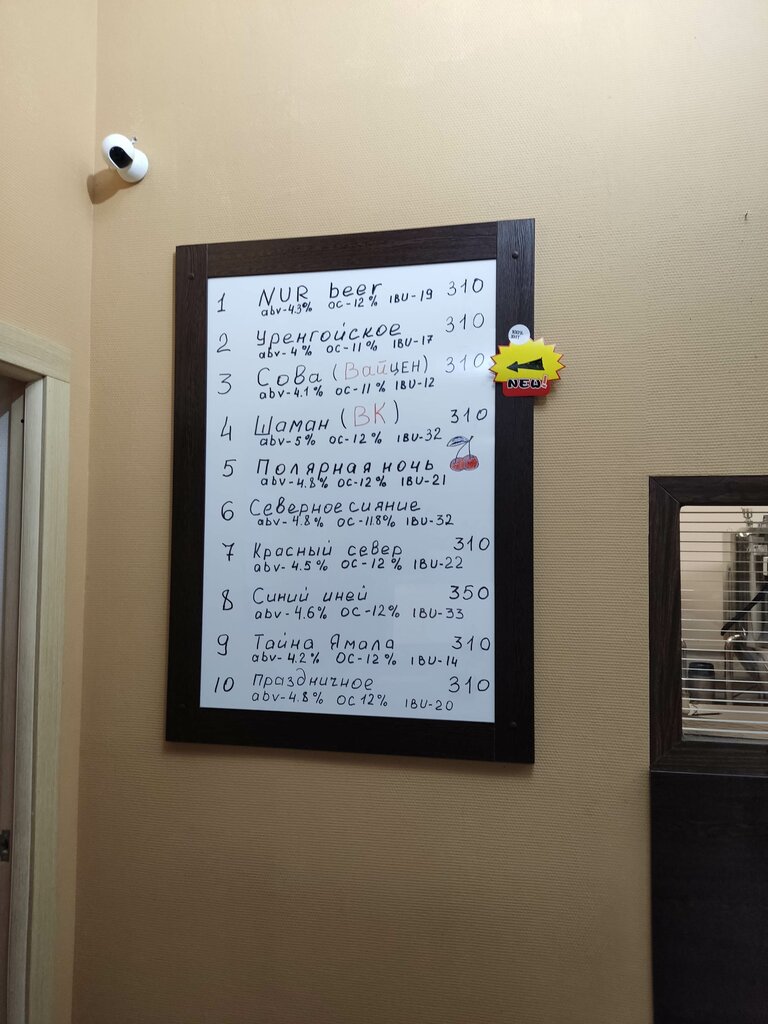 1 NUR beer 310
abv-4.3% ОС-12% IBU-19
2 Уренгойское 310
abv-4% ОС-11% IBU-17
3 Сова (Вайцен) 310
abv-4.1% ОС-11% IBU-12
NEW!
4 Шаман (ВК) 310
abv-5% ОС-12% IBU-32
5 Полярная ночь
abv-4.8% ОС-12% IBU-21
6 Северное сияние
abv-4.8% ОС-11.8% IBU-32
7 Красный север 310
abv-4.5% ОС-12% IBU-22
8 Синий иней 350
abv-4.6% ОС-12% IBU-33
9 Тайна Ямала 310
abv-4.2% ОС-12% IBU-14
10 Праздничное 310
abv-4.8% ОС 12% IBU-20